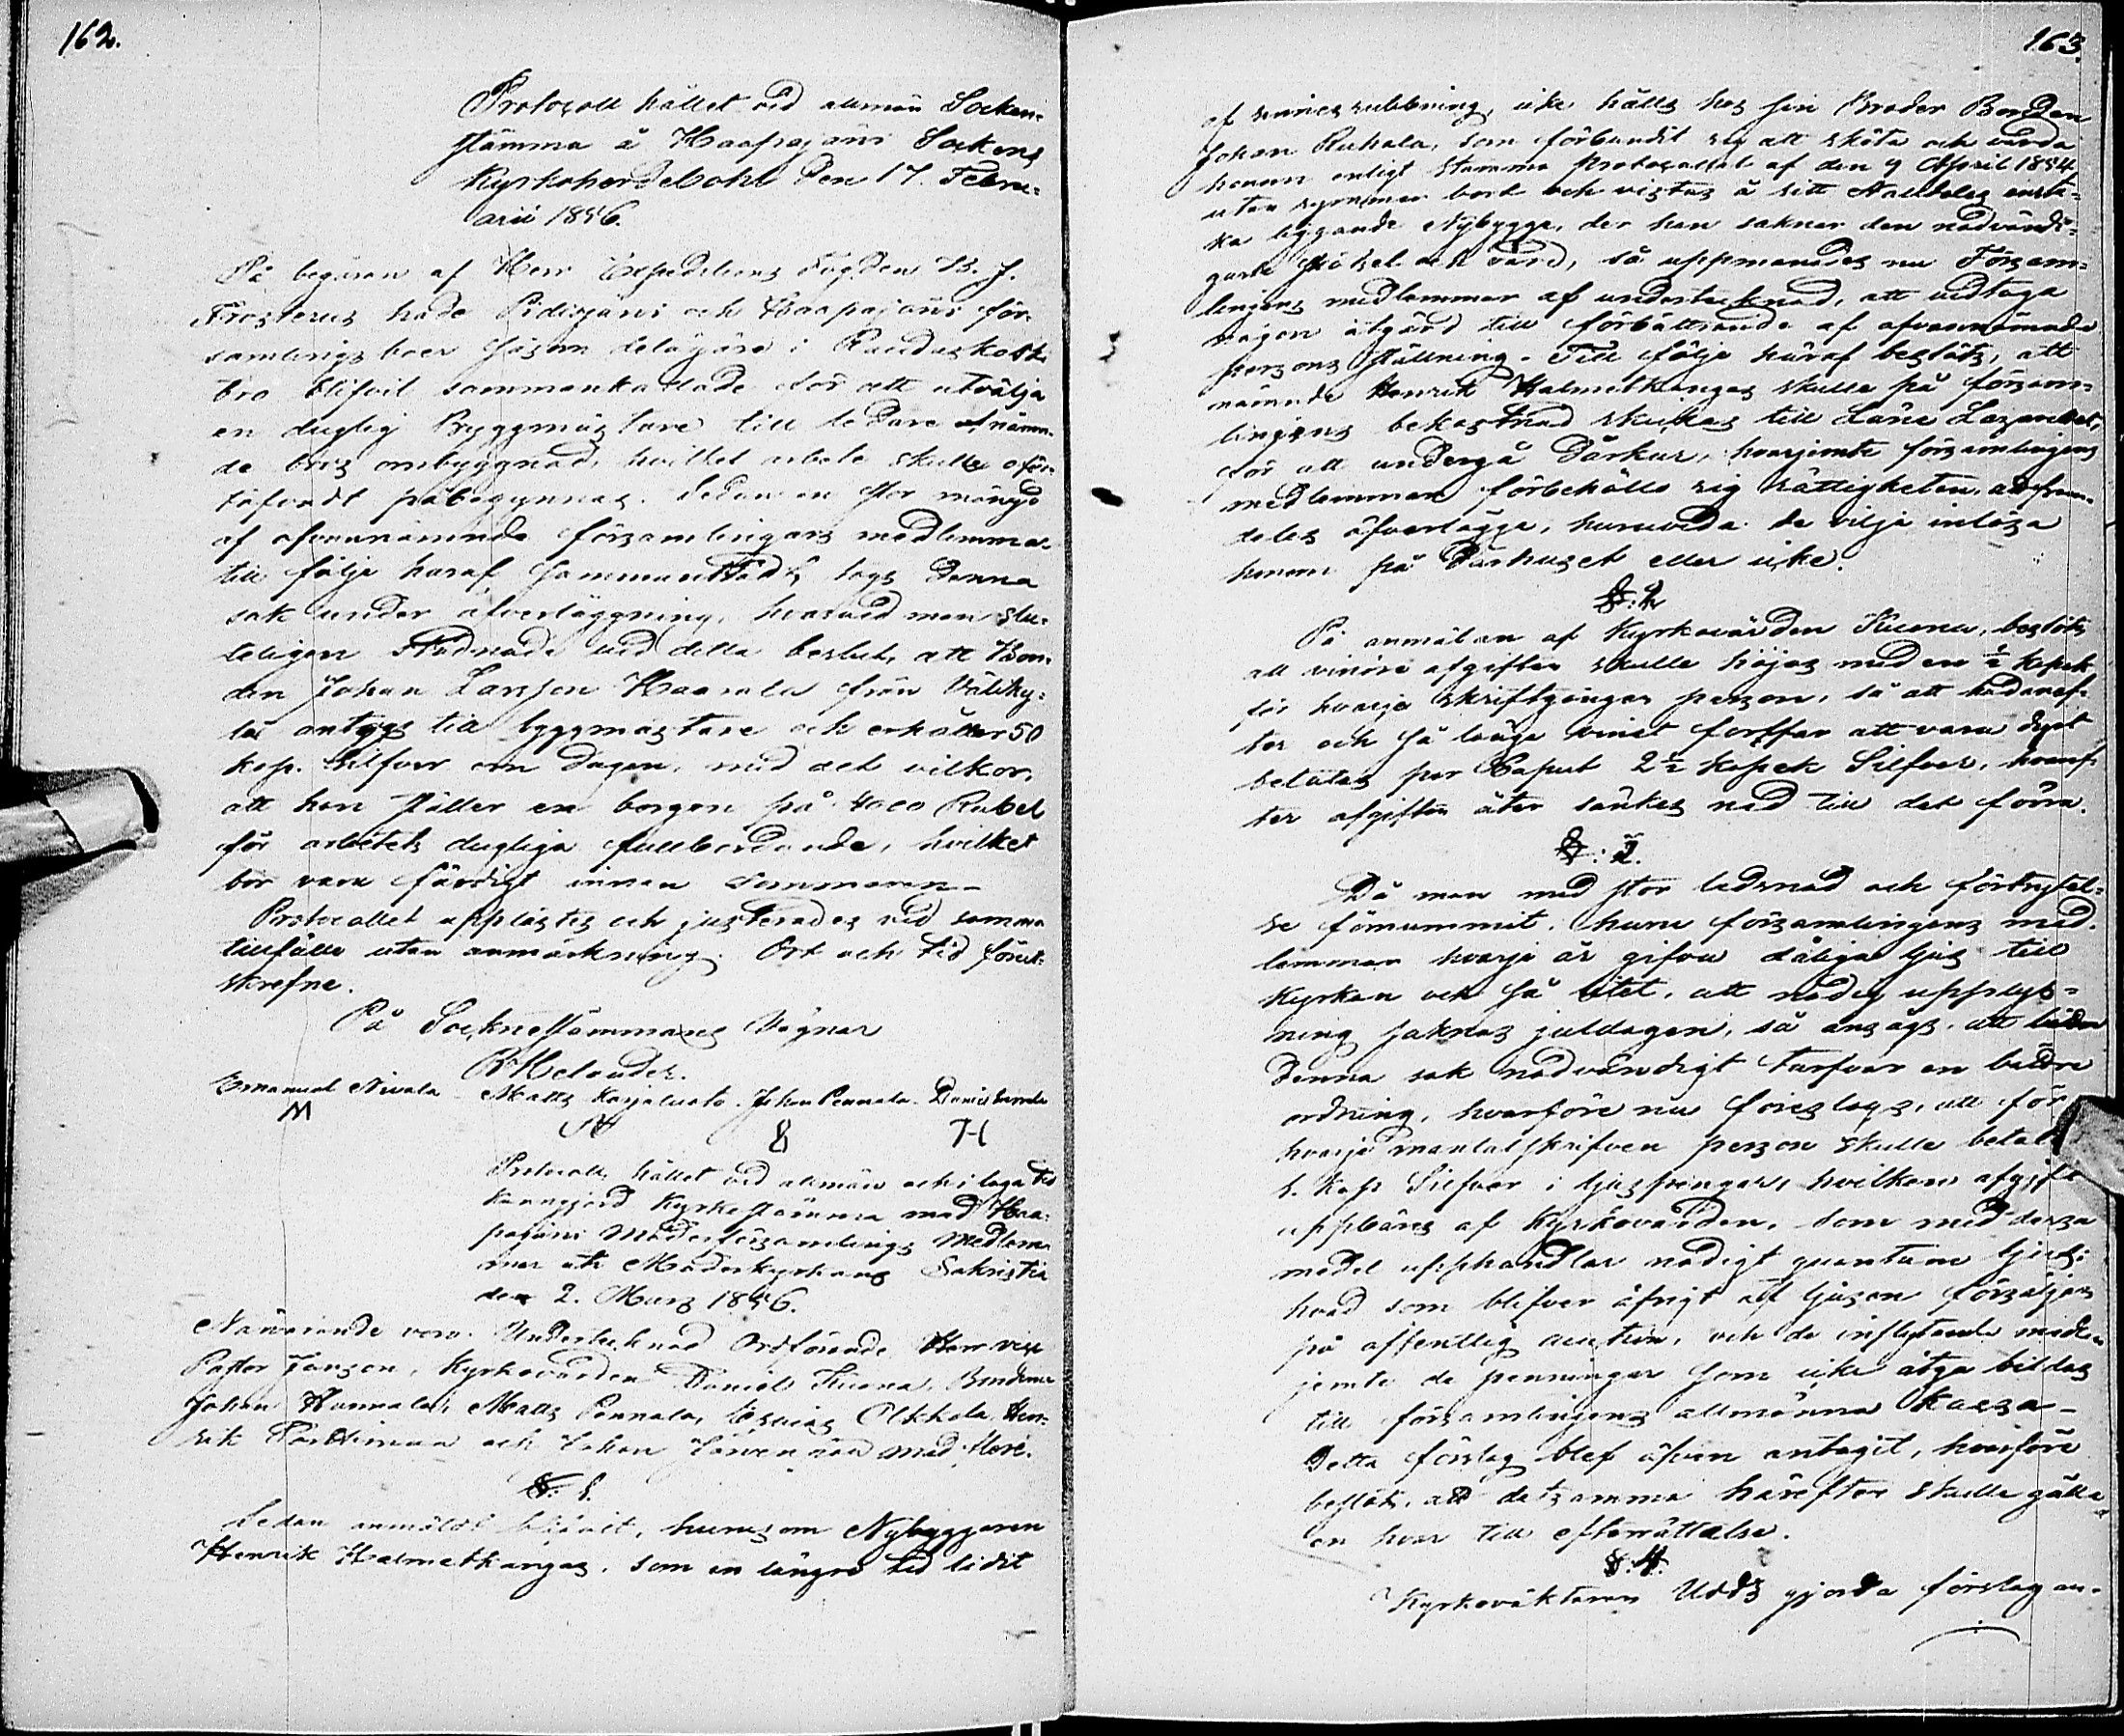 162.
Protocoll hållet vid allmän Socken-
stämma å Haapajärvi Sockens
Kyrkoherdebohl den 17. Febru-
arii 1856.
På begäran af Herr Expeditions Fogden B. J.
Frosterus hade Pidisjärvi och Haapajärvi för-
samlings boer såsom delägare i Rauduskoski
bro blifvit sammankallade för att utvälja
en duglig Byggmästare till ledare af nämn-
de bros ombyggnad, hvilket arbete skulle oför-
töfvadt påbegynnas. Sedan en stor mängd
af ofvannämnde församlingars medlemmar
till följe häraf sammanträdt, togs denna
sak under öfverläggning, hvarvid man slu-
teligen stadnade vid detta beslut, att Bon-
den Johan Larsson Haarala från Väliky-
lä antogs till byggmästare och erhåller 50
kop. Silfver om dagen, med det vilkor,
att han ställer en borgen på 4000 Rubel
för arbetets dugliga fullbordande, hvilket
bör vara färdigt innan sommaren.
Protocollet upplästes och justerades vid samma
tillfälle utan anmärkning. Ort och tid förut-
skrefne.
På Socknestämmans Vägnar
R Helander.
Emanuel Nivala Matts Karjaluoto Johan Pennala Daniel
M 8 H
Protocoll, hållet vid allmän och i laga tid
kungjord Kyrkostämma med Haa-
pajärvi Moderförsamlings Medlem-
mar uti Moderkyrkans Sakristia
den 2. Mars 1856.
Närvarande voro Undertecknad Ordförande, Herr vice
Pastor Janson, Kyrkovärden Daniel Kuona, Bönderne
Johan Hannala, Matts Pennala, Esaias Olkkola, Hen-
rik Parkkinen och Johan Järvenpää med flere.
§. 1.
Sedan anmäldt blifvit, hurusom Nybyggaren
Henrik Halmetkangas, som en längre tid lidit
163.
af sinnes rubbning, icke hålls hos sin Broder Bonden
Johan Ruhala, som förbundit sig att sköta och vårda
honom enligt Stämmo protocollet af den 9 April 1854
utan rymmer bort och vistas å sitt Aldeles ensta-
ka liggande Nybygge, der han saknar den nödvändi-
gaste skötsel och vård, så uppmanades nu Försam-
lingens medlemmar af undertecknad, att vidtaga
någon åtgärd till förbättrande af ofvannämnde
persons ställning. Till följe häraf beslöts, att
nämnde Henrik Halmetkangas skulle på försam-
lingens bekostnad skickas till Läne Lazarettet,
för att undergå Dårkur, hvarjemte församlingens
medlemmar förbehöllo sig rättigheten att fram-
deles öfverlägga, huruvida de vilja inlösa
honom på Dårhuset eller icke.
§. 2
På anmälan af Kyrkovärden Kuona, beslöts
att vinöre afgiften skulle höjas med en ½ kopek
för hvarje skriftgångs person, så att hädanef-
ter och så länge vinet fortfar att vara dyrt
betalas per Caput 2½ kopek Silfver, hvaref-
ter afgiften åter sänkes ned till det förra.
§. 3.
Då man med stor ledsnad och förtrytel-
se förnummit, huru församlingens med-
lemmar hvarje år gifva dåliga ljus till
Kyrkan och så litet, att nödig upplys-
ning saknas juldagen, så ansågs, att
denna sak nödvändigt tarfvar en bättre
ordning, hvarföre nu föreslogs, att för
hvarje mantalsskrifven person skulle betalas
1. Kop Silfver i ljuspengar, hvilken afgift
uppbäres af Kyrkovärden, som med dessa
medel upphandlar nödigt quantum ljus;
hvad som blifver öfrigt af ljusen försäljes
på offentlig auction, och de inflytande medlen
jemte de penningar som icke åtgå bildas
till församlingens allmänna kassa.
Detta förslag blef äfven antagit, hvarföre
beslöts, att detsamma härefter skulle gälla
en hvar till efterrättelse.
§. 4.
Kyrkoväktaren Udds gjorda förslag an-